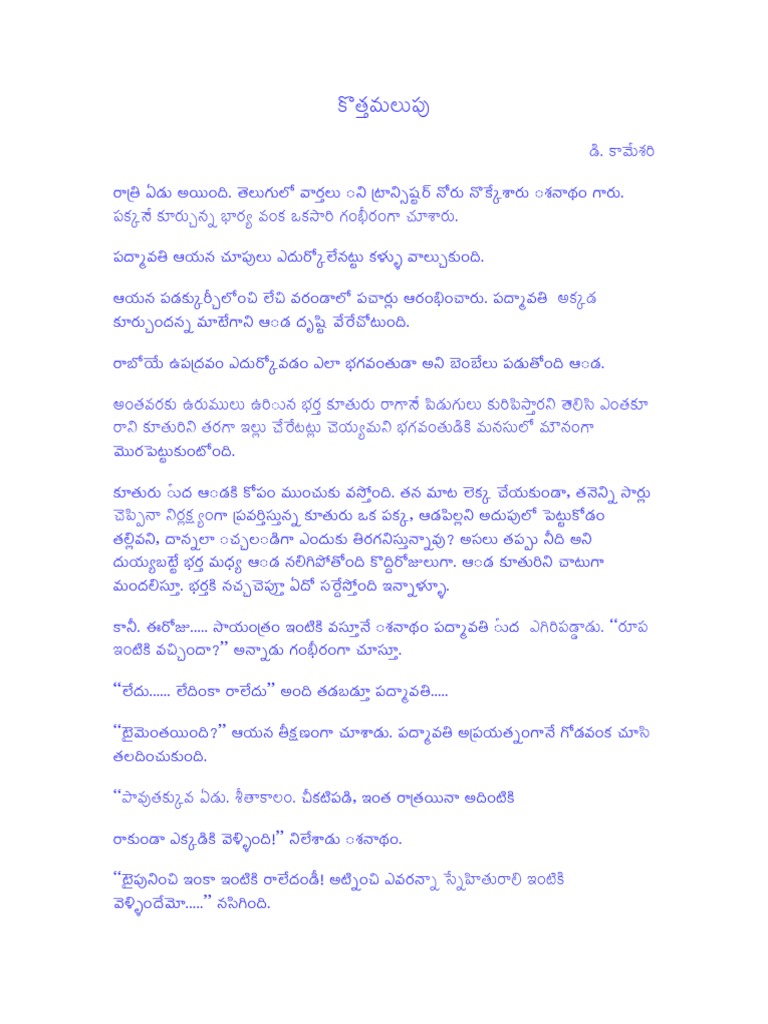 కొత్తమలుపు
డి. కామేశరి
రాత్రి ఏడు అయింది. తెలుగులో వార్తలు ిని ట్రాన్సిష్టర్ నోరు నొక్కేశారు ిశనాథం గారు.
పక్కనే కూర్చున్న భార్య వంక ఒకసారి గంభీరంగా చూశారు.
పద్మావతి ఆయన చూపులు ఎదుర్కోలేనట్టు కళ్ళు వాల్చుకుంది.
ఆయన పడక్కుర్చీలోంచి లేచి వరండాలో పచార్లు ఆరంభించారు. పద్మావతి అక్కడ
కూర్చుందన్న మాటేగాని ఆిడ దృష్టి వేరేచోటుంది.
రాబోయే ఉపద్రవం ఎదుర్కోవడం ఎలా భగవంతుడా అని బెంబేలు పడుతోంది ఆిడ.
అంతవరకు ఉరుములు ఉరిుున భర్త కూతురు రాగానే పిడుగులు కురిపిస్తారని తెలిసి ఎంతకూ
రాని కూతురిని తరగా ఇల్లు చేరేటట్లు చెయ్యమని భగవంతుడికి మనసులో మౌనంగా
మొరపెట్టుకుంటోంది.
కూతురు ీుద ఆిడకి కోపం ముంచుకు వస్తోంది. తన మాట లెక్క చేయకుండా, తనెన్ని సార్లు
చెప్పినా నిర్లక్ష్యంగా ప్రవర్తిస్తున్న కూతురు ఒక పక్క, ఆడపిల్లని అదుపులో పెట్టుకోడం
తల్లివని, దాన్నలా ిచ్చలిడిగా ఎందుకు తిరగనిస్తున్నావు? అసలు తప్పు నీది అని
దుయ్యబట్టే భర్త మధ్య ఆిడ నలిగిపోతోంది కొద్దిరోజులుగా. ఆిడ కూతురిని చాటుగా
మందలిస్తూ. భర్తకి నచ్చచెప్తూ ఏదో సర్దేస్తోంది ఇన్నాళ్ళూ.
కానీ. ఈరోజు..... సాయంత్రం ఇంటికి వస్తూనే ిశనాథం పద్మావతి ీుద ఎగిరిపడ్డాడు. “రూప
ఇంటికి వచ్చిందా?” అన్నాడు గంభీరంగా చూస్తూ.
“లేదు...... లేదింకా రాలేదు” అంది తడబడ్తూ పద్మావతి.....
“టైమెంతయింది?” ఆయన తీక్షణంగా చూశాడు. పద్మావతి అప్రయత్నంగానే గోడవంక చూసి
తలదించుకుంది.
“పావుతక్కువ ఏడు. శీతాకాలం. చీకటిపడి, ఇంత రాత్రయినా అదింటికి
రాకుండా ఎక్కడికి వెళ్ళింది!” నిలేశాడు ిశనాథం.
“టైపునించి ఇంకా ఇంటికి రాలేదండీ! అట్నించి ఎవరన్నా స్నేహితురాలి ఇంటికి
వెళ్ళిందేమో.....” నసిగింది.